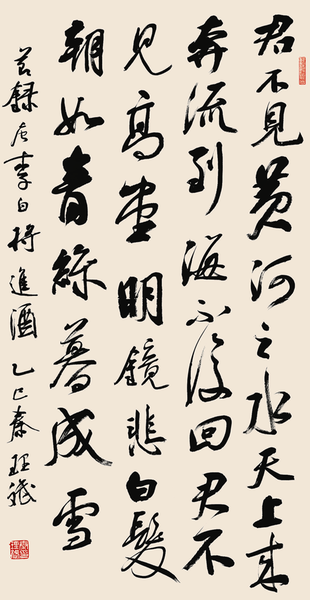 君不見黄河之水天上来
奔流到海不復回君不
見高堂明鏡悲白髮
朝如青絲暮成雪
节録唐李白将進酒乙巳